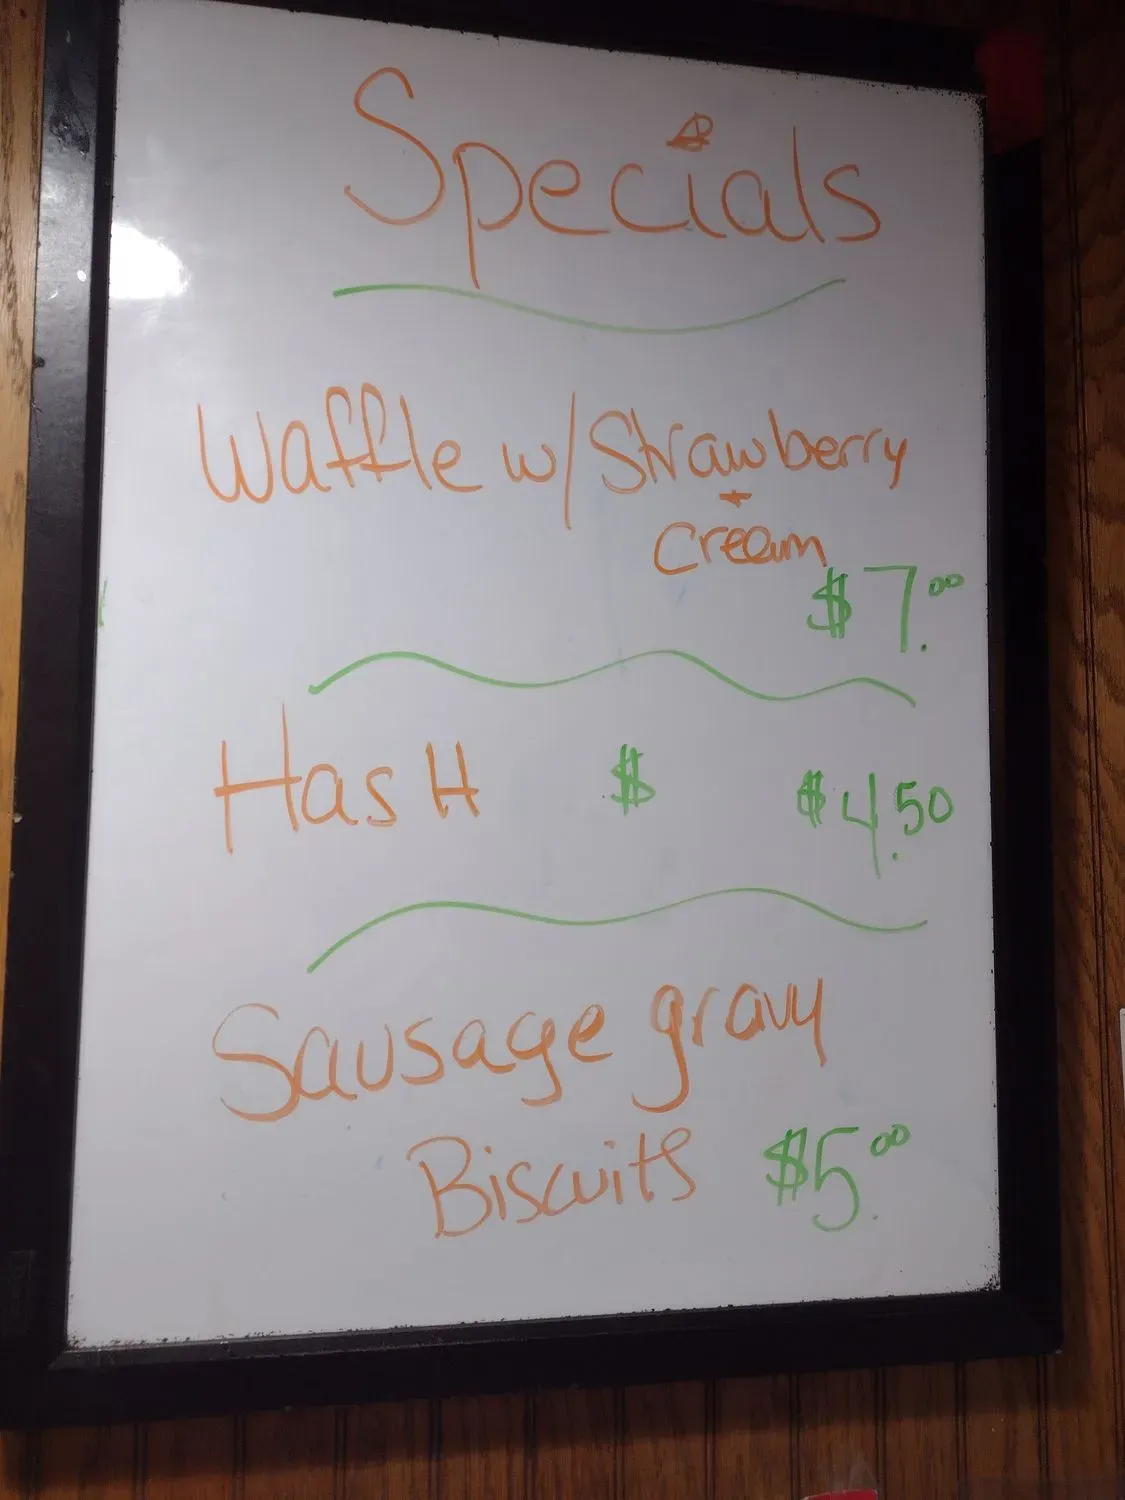 Specials
Waffle w/ Strawberry
+
Cream
$7.00
Hash $ $4.50
Sausage gravy
Biscuits $5.00